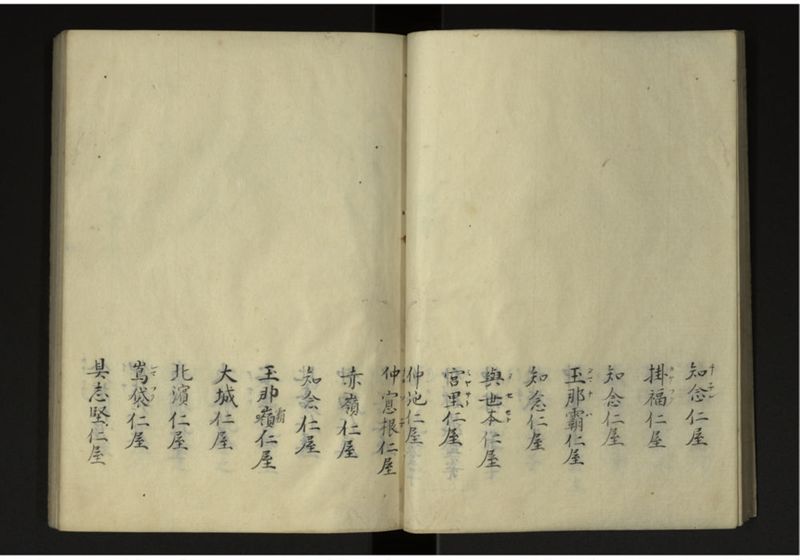 知念仁屋
掛福仁屋
知念仁屋
玉那覇仁屋
知念仁屋
與世本仁屋
宮里仁屋
仲地仁屋
仲窓根仁屋
赤嶺仁屋
知念仁屋
玉那嶺仁屋
大城仁屋
北濱仁屋
嵩袋仁屋
具志堅仁屋